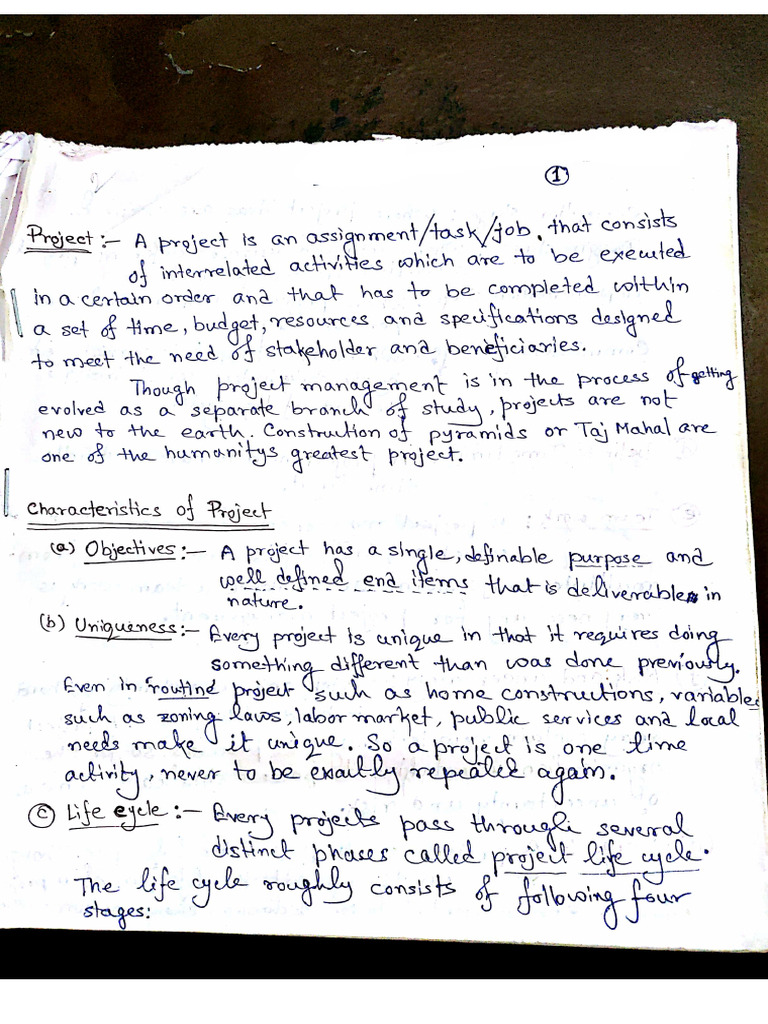 ①
Project :- A project is an assignment/task/job, that consists
of interrelated activities which are to be executed
in a certain order and that has to be completed within
a set of time, budget, resources and specifications designed
to meet the need of stakeholder and beneficiaries.
Though project management is in the process of getting
evolved as a separate branch of study, projects are not
new to the earth. Construction of pyramids or Taj Mahal are
one of the humanitys greatest project.
Characteristics of Project
(a) Objectives :- A project has a single, definable purpose and
well defined end items that is deliverables in
nature.
(b) Uniqueness :- Every project is unique in that it requires doing
something different than was done previously.
Even in "routine" project such as home constructions, variables
such as zoning laws, labor market, public services and local
needs make it unique. So a project is one time
activity, never to be exactly repeated again.
ⓒ Life cycle :- Every projects pass through several
distinct phases called project life cycle.
The life cycle roughly consists of following four
stages: